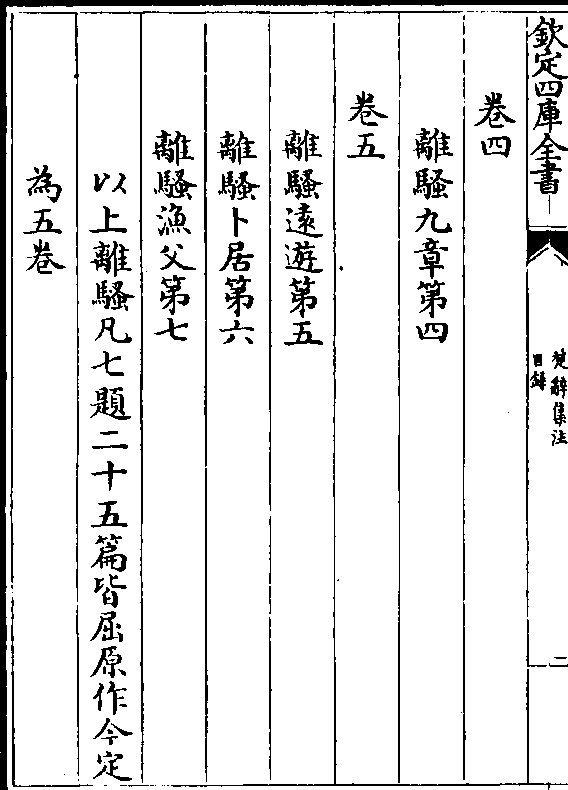 欽定四庫全書
楚辭集注
目録
二
卷四
離騷九章第四
卷五
離騷遠遊第五
離騷卜居第六
離騷漁父第七
以上離騷凡七題二十五篇皆屈原作今定
為五卷